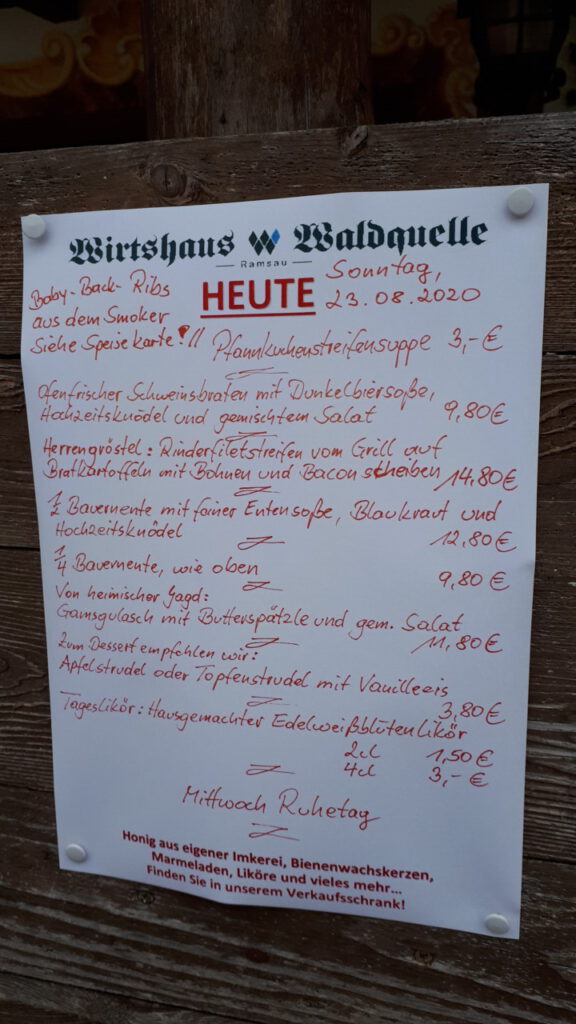 Wirtshaus W Waldquelle
Ramsau
HEUTE
Sonntag,
23.08.2020
Baby-Back-Ribs
aus dem Smoker
Siehe Speisekarte!!!
Pfannkuchenstreifensuppe 3,-€
Ofenfrischer Schweinsbraten mit Dunkelbiersoße,
Hochzeitsknödel und gemischtem Salat 9,80€
Herrengröstel: Rinderfiletstreifen vom Grill auf
Bratkartoffeln mit Bohnen und Baconscheiben 14,80€
1/2 Bauernente mit feiner Entensoße, Blaukraut und
Hochzeitsknödel 12,80€
1/4 Bauernente, wie oben 9,80€
Von heimischer Jagd:
Gamsgulasch mit Butterspätzle und gem. Salat
11,80€
Zum Dessert empfehlen wir:
Apfelstrudel oder Topfenstrudel mit Vanilleeis
3,80€
Tageslikör: Hausgemachter Edelweißblütenlikör
2cl 1,50€
4cl 3,-€
Mittwoch Ruhetag
Honig aus eigener Imkerei, Bienenwachskerzen,
Marmeladen, Liköre und vieles mehr...
Finden Sie in unserem Verkaufsschrank!